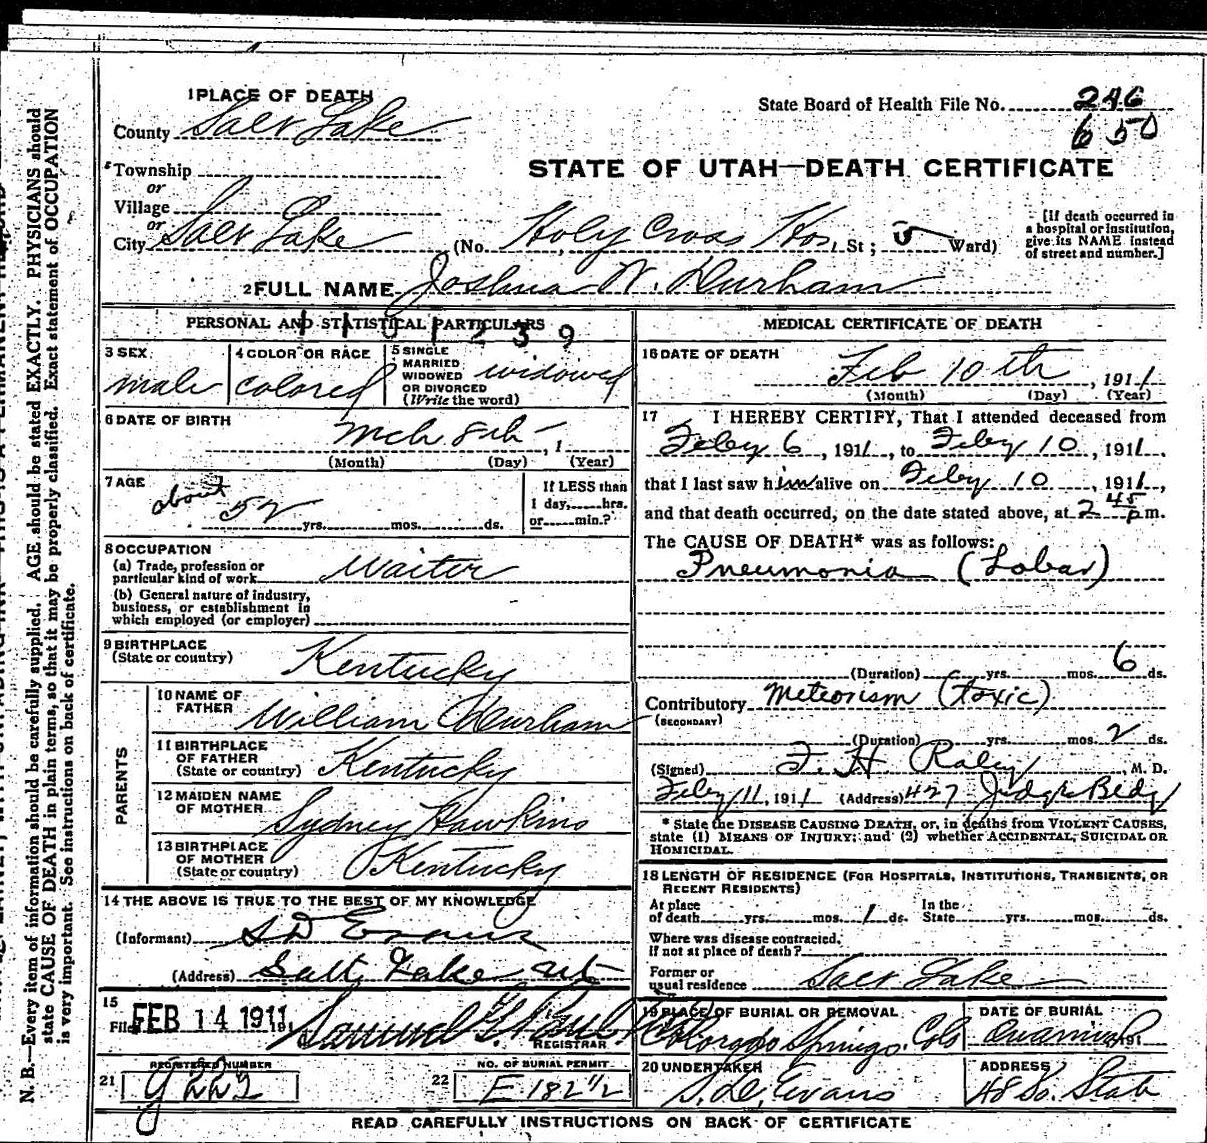 1 PLACE OF DEATH
State Board of Health File No. 246
650
County Salt Lake
STATE OF UTAH—DEATH CERTIFICATE
Township
or
Village
or
City Salt Lake (No. Holy Cross Hos, St; 5 Ward)
[If death occurred in
a hospital or institution,
give its NAME instead
of street and number.]
2 FULL NAME Joshua W. Durham
PERSONAL AND STATISTICAL PARTICULARS
3 SEX
male
4 COLOR OR RACE
colored
5 SINGLE
MARRIED
WIDOWED
OR DIVORCED
(Write the word)
widowed
6 DATE OF BIRTH
Mch 8th, 1
(Month) (Day) (Year)
7 AGE
about 52 yrs. mos. ds.
If LESS than
1 day, hrs.
or min.?
8 OCCUPATION
(a) Trade, profession or
particular kind of work Waiter
(b) General nature of industry,
business, or establishment in
which employed (or employer)
9 BIRTHPLACE
(State or country) Kentucky
PARENTS
10 NAME OF
FATHER William Durham
11 BIRTHPLACE
OF FATHER
(State or country) Kentucky
12 MAIDEN NAME
OF MOTHER Sydney Hawkins
13 BIRTHPLACE
OF MOTHER
(State or country) Kentucky
14 THE ABOVE IS TRUE TO THE BEST OF MY KNOWLEDGE
(Informant) S D Evans
(Address) Salt Lake Ut
15
Filed FEB 14 1911 Samuel G. Paul
REGISTRAR
21 REGISTERED NUMBER
22 NO. OF BURIAL PERMIT
E 182 1/2
MEDICAL CERTIFICATE OF DEATH
16 DATE OF DEATH
Feb 10th, 1911
(Month) (Day) (Year)
17 I HEREBY CERTIFY, That I attended deceased from
Feby 6, 1911, to Feby 10, 1911,
that I last saw him alive on Feby 10, 1911,
and that death occurred, on the date stated above, at 2 45 p m.
The CAUSE OF DEATH* was as follows:
Pneumonia (Lobar)
(Duration) yrs. mos. 6 ds.
Contributory Meteorism (toxic)
(SECONDARY)
(Duration) yrs. mos. 2 ds.
(Signed) F. H. Raley M. D.
Feby 11, 1911 (Address) 427 Judge Bldg
* State the DISEASE CAUSING DEATH, or, in deaths from VIOLENT CAUSES,
state (1) MEANS OF INJURY; and (2) whether ACCIDENTAL, SUICIDAL OR
HOMICIDAL.
18 LENGTH OF RESIDENCE (FOR HOSPITALS, INSTITUTIONS, TRANSIENTS, OR
RECENT RESIDENTS)
At place
of death yrs. mos. 1 ds. In the
State yrs. mos. ds.
Where was disease contracted,
if not at place of death?
Former or
usual residence Salt Lake
19 PLACE OF BURIAL OR REMOVAL
Colorado Springs, Colo
DATE OF BURIAL
191
20 UNDERTAKER
S. D. Evans
ADDRESS
48 So. State
READ CAREFULLY INSTRUCTIONS ON BACK OF CERTIFICATE
N. B.—Every item of information should be carefully supplied. AGE should be stated EXACTLY. PHYSICIANS should
state CAUSE OF DEATH in plain terms, so that it may be properly classified. Exact statement of OCCUPATION
is very important. See instructions on back of certificate.